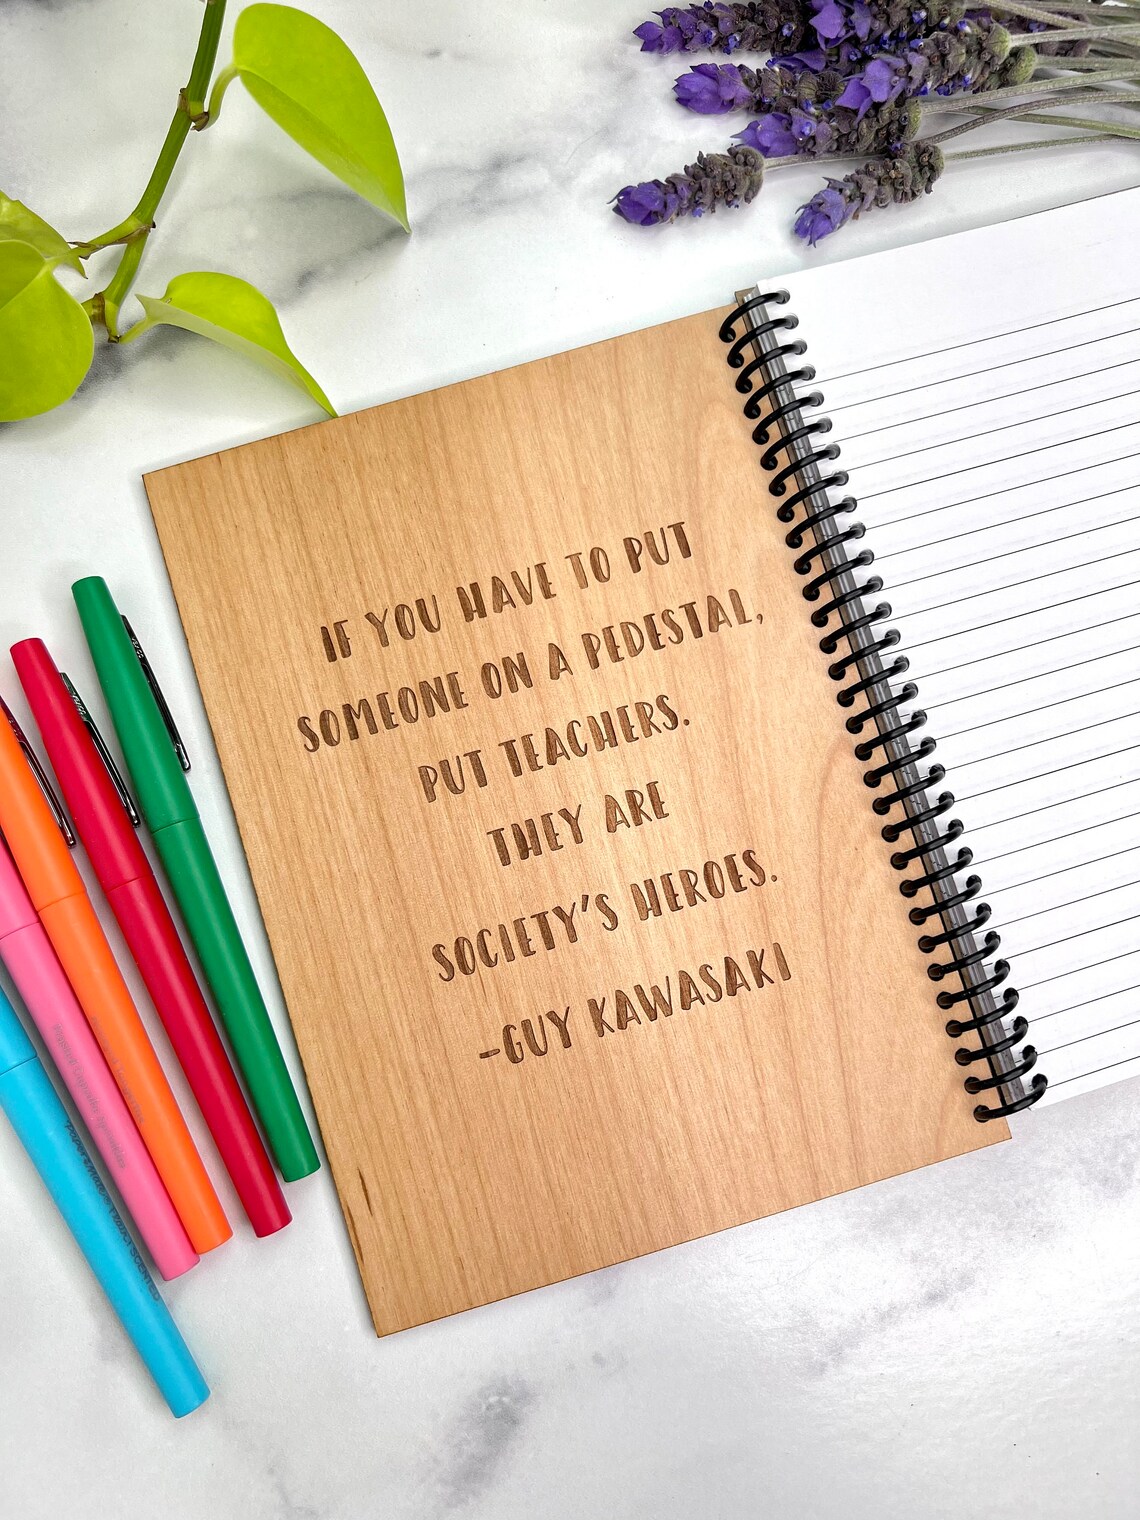 IF YOU HAVE TO PUT
SOMEONE ON A PEDESTAL,
PUT TEACHERS.
THEY ARE
SOCIETY'S HEROES.
-GUY KAWASAKI